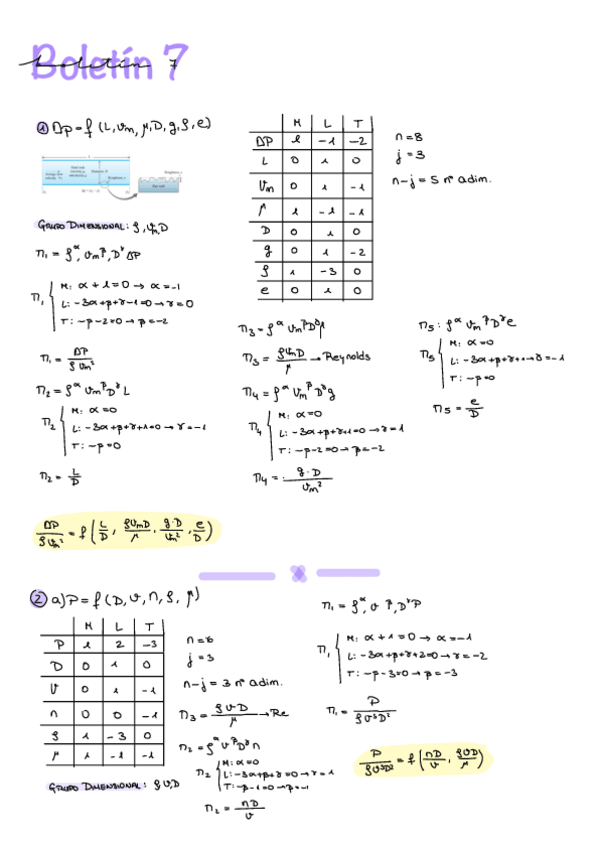 Boletín 7
boletín 7
① ΔP = f (L, Vm, μ, D, g, ρ, e)
M L T
ΔP 1 -1 -2
L 0 1 0
Vm 0 1 -1
μ 1 -1 -1
D 0 1 0
g 0 1 -2
ρ 1 -3 0
e 0 1 0
n=8
j=3
n-j = 5 nº adim.
GRUPO DIMENSIONAL: ρ, Vm, D
π1 = ρ^α, Vm^β, D^γ ΔP
π1
M: α+1=0 → α=-1
L: -3α+β+γ-1=0 → γ=0
T: -β-2=0 → β=-2
π1 = ΔP / ρVm²
π2 = ρ^α Vm^β D^γ L
π2
M: α=0
L: -3α+β+γ+1=0 → γ=-1
T: -β=0
π2 = L/D
π3 = ρ^α Vm^β D^γ μ
π3 = ρVmD / μ → Reynolds
π4 = ρ^α Vm^β D^γ g
π4
M: α=0
L: -3α+β+γ+1=0 → γ=1
T: -β-2=0 → β=-2
π4 = g·D / Vm²
π5: ρ^α Vm^β D^γ e
π5
M: α=0
L: -3α+β+γ+1→γ=-1
T: -β=0
π5 = e/D
ΔP/ρVm² = f (L/D, ρVmD/μ, g·D/Vm², e/D)
② a) P = f (D, V, n, ρ, μ)
M L T
P 1 2 -3
D 0 1 0
V 0 1 -1
n 0 0 -1
ρ 1 -3 0
μ 1 -1 -1
GRUPO DIMENSIONAL: ρ V, D
n=6
j=3
n-j = 3 nº adim.
π3 = ρVD/μ → Re
π2 = ρ^α V^β D^γ n
π2
M: α=0
L: -3α+β+γ=0 → γ=1
T: -β-1=0 → β=-1
π2 = nD/V
π1 = ρ^α, V^β, D^γ P
π1
M: α+1=0 → α=-1
L: -3α+β+γ+2=0 → γ=-2
T: -β-3=0 → β=-3
π1 = P / ρV³D²
P/ρV³D² = f (nD/V, ρVD/μ)